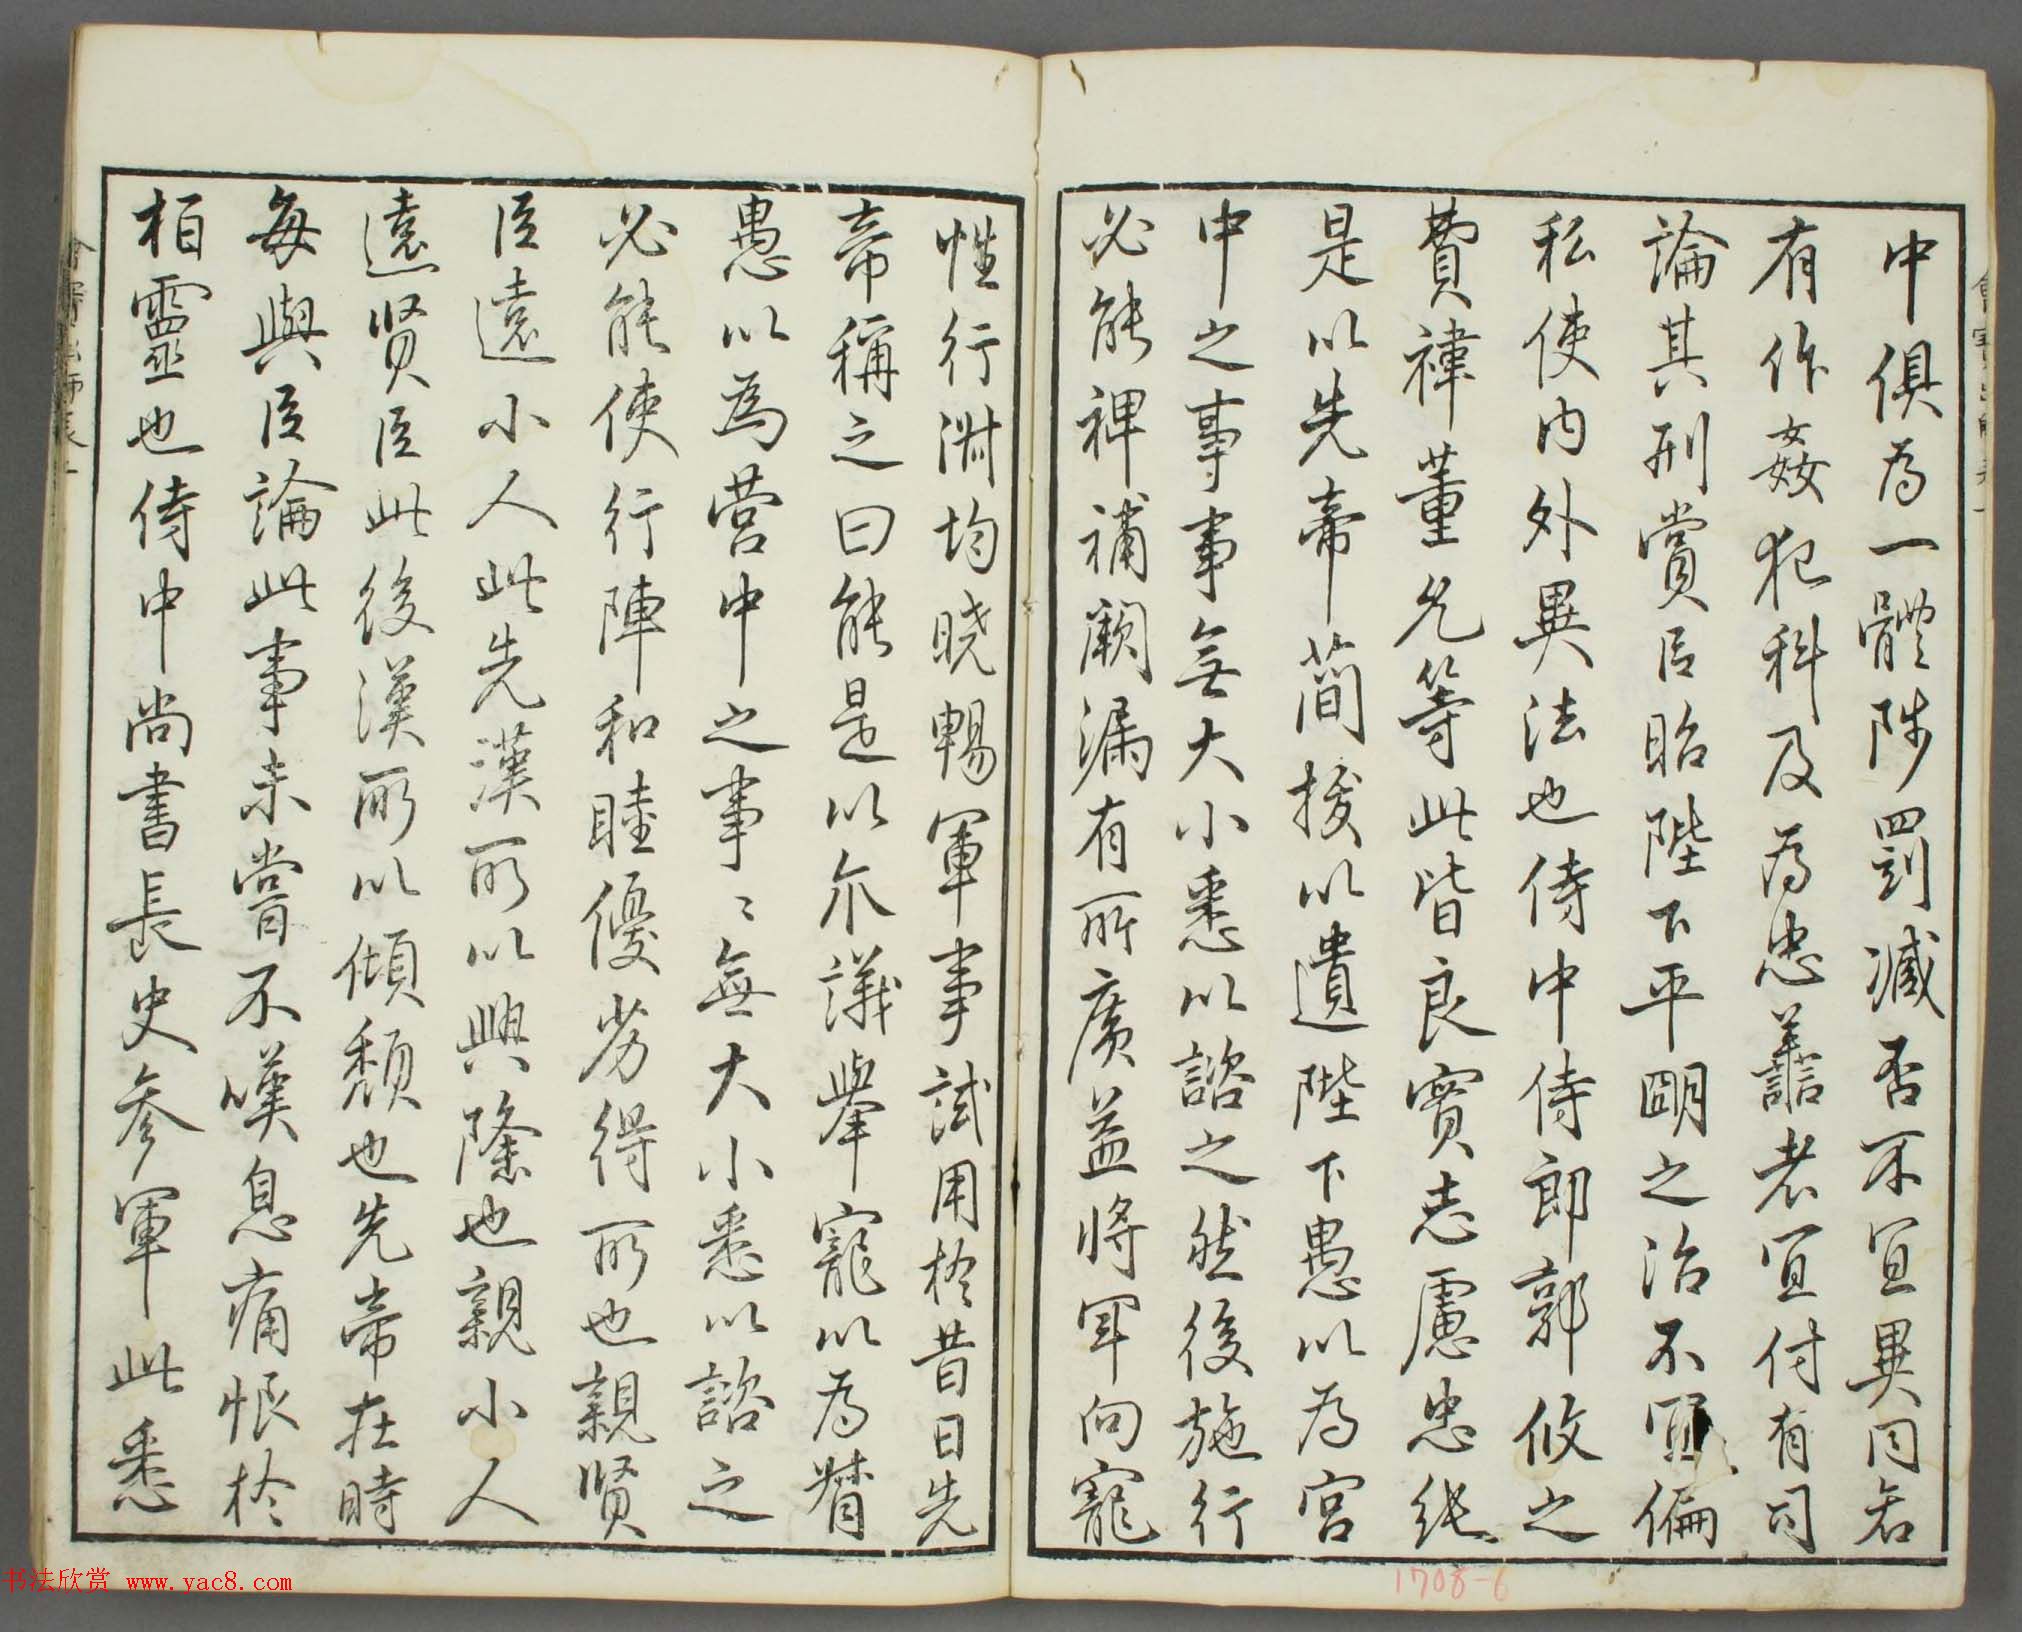 中俱為一體陟罰減否不宜異同若
有作姦犯科及為忠善者宜付有司
論其刑賞以昭陛下平明之治不宜偏
私使内外異法也侍中侍郎郭攸之
費禕董允等此皆良實志慮忠純
是以先帝簡拔以遺陛下愚以為宮
中之事事無大小悉以諮之然後施行
必能裨補闕漏有所廣益將軍向寵
性行淑均曉暢軍事試用於昔日先
帝稱之曰能是以眾議舉寵以為督
愚以為營中之事〻無大小悉以諮之
必能使行陣和睦優劣得所也親賢
臣遠小人此先漢所以興隆也親小人
遠賢臣此後漢所以傾頹也先帝在時
每與臣論此事未嘗不嘆息痛恨於
桓靈也侍中尚書長史參軍此悉
1708-6
书法欣赏 www.yac8.com